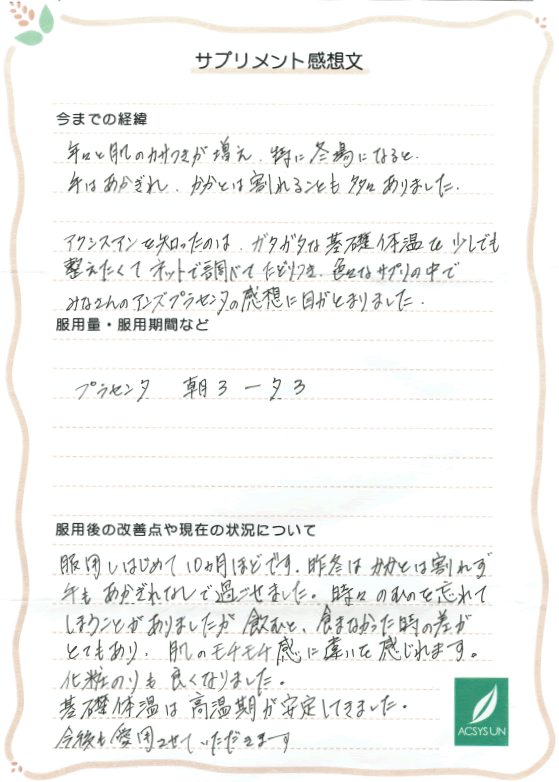 サプリメント感想文
今までの経緯
年々と肌のカサつきが増え、特に冬場になると、
手はあかぎれ、カカとは割れることも多々ありました.
アクシスアンを知ったのは、ガタガタな基礎体温を少しでも
整えたくてネットで調べてたどりつき、色々なサプリの中で
みなさんのアンズプラセンタの感想に目がとまりました.
服用量・服用期間など
プラセンタ 朝3 ー夕3
服用後の改善点や現在の状況について
服用しはじめて10ヵ月ほどです. 昨冬はカカとは割れず
手もあかぎれなしで過ごせました。時々のむのを忘れて
しまうことがありましたが 飲むと、飲まなかった時の差が
とてもあり、肌のモチモチ感に違いを感じれます。
化粧のりも良くなりました。
基礎体温は高温期が安定してきました.
今後も愛用させていただきます
ACSYSUN